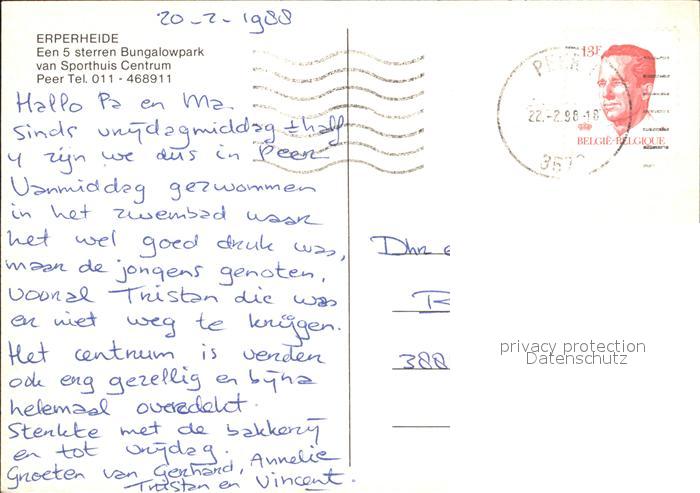 20-2-1988
ERPERHEIDE
Een 5 sterren Bungalowpark
van Sporthuis Centrum
Peer Tel. 011 - 468911
Hallo Pa en Ma.
sinds vrijdagmiddag ± half
4 zijn we dus in Peer
Vanmiddag gezwommen
in het zwembad waar
het wel goed druk was,
maar de jongens genoten,
vooral Tristan die was
er niet weg te krijgen.
Het centrum is verder
ook erg gezellig en bijna
helemaal overdekt.
Sterkte met de bakkerij
en tot vrijdag.
Groeten van Gerhard, Annelie
Tristan en Vincent.
13F
BELGIË-BELGIQUE
PEER
22.-2.88-18
Dhr
388
privacy protection
Datenschutz